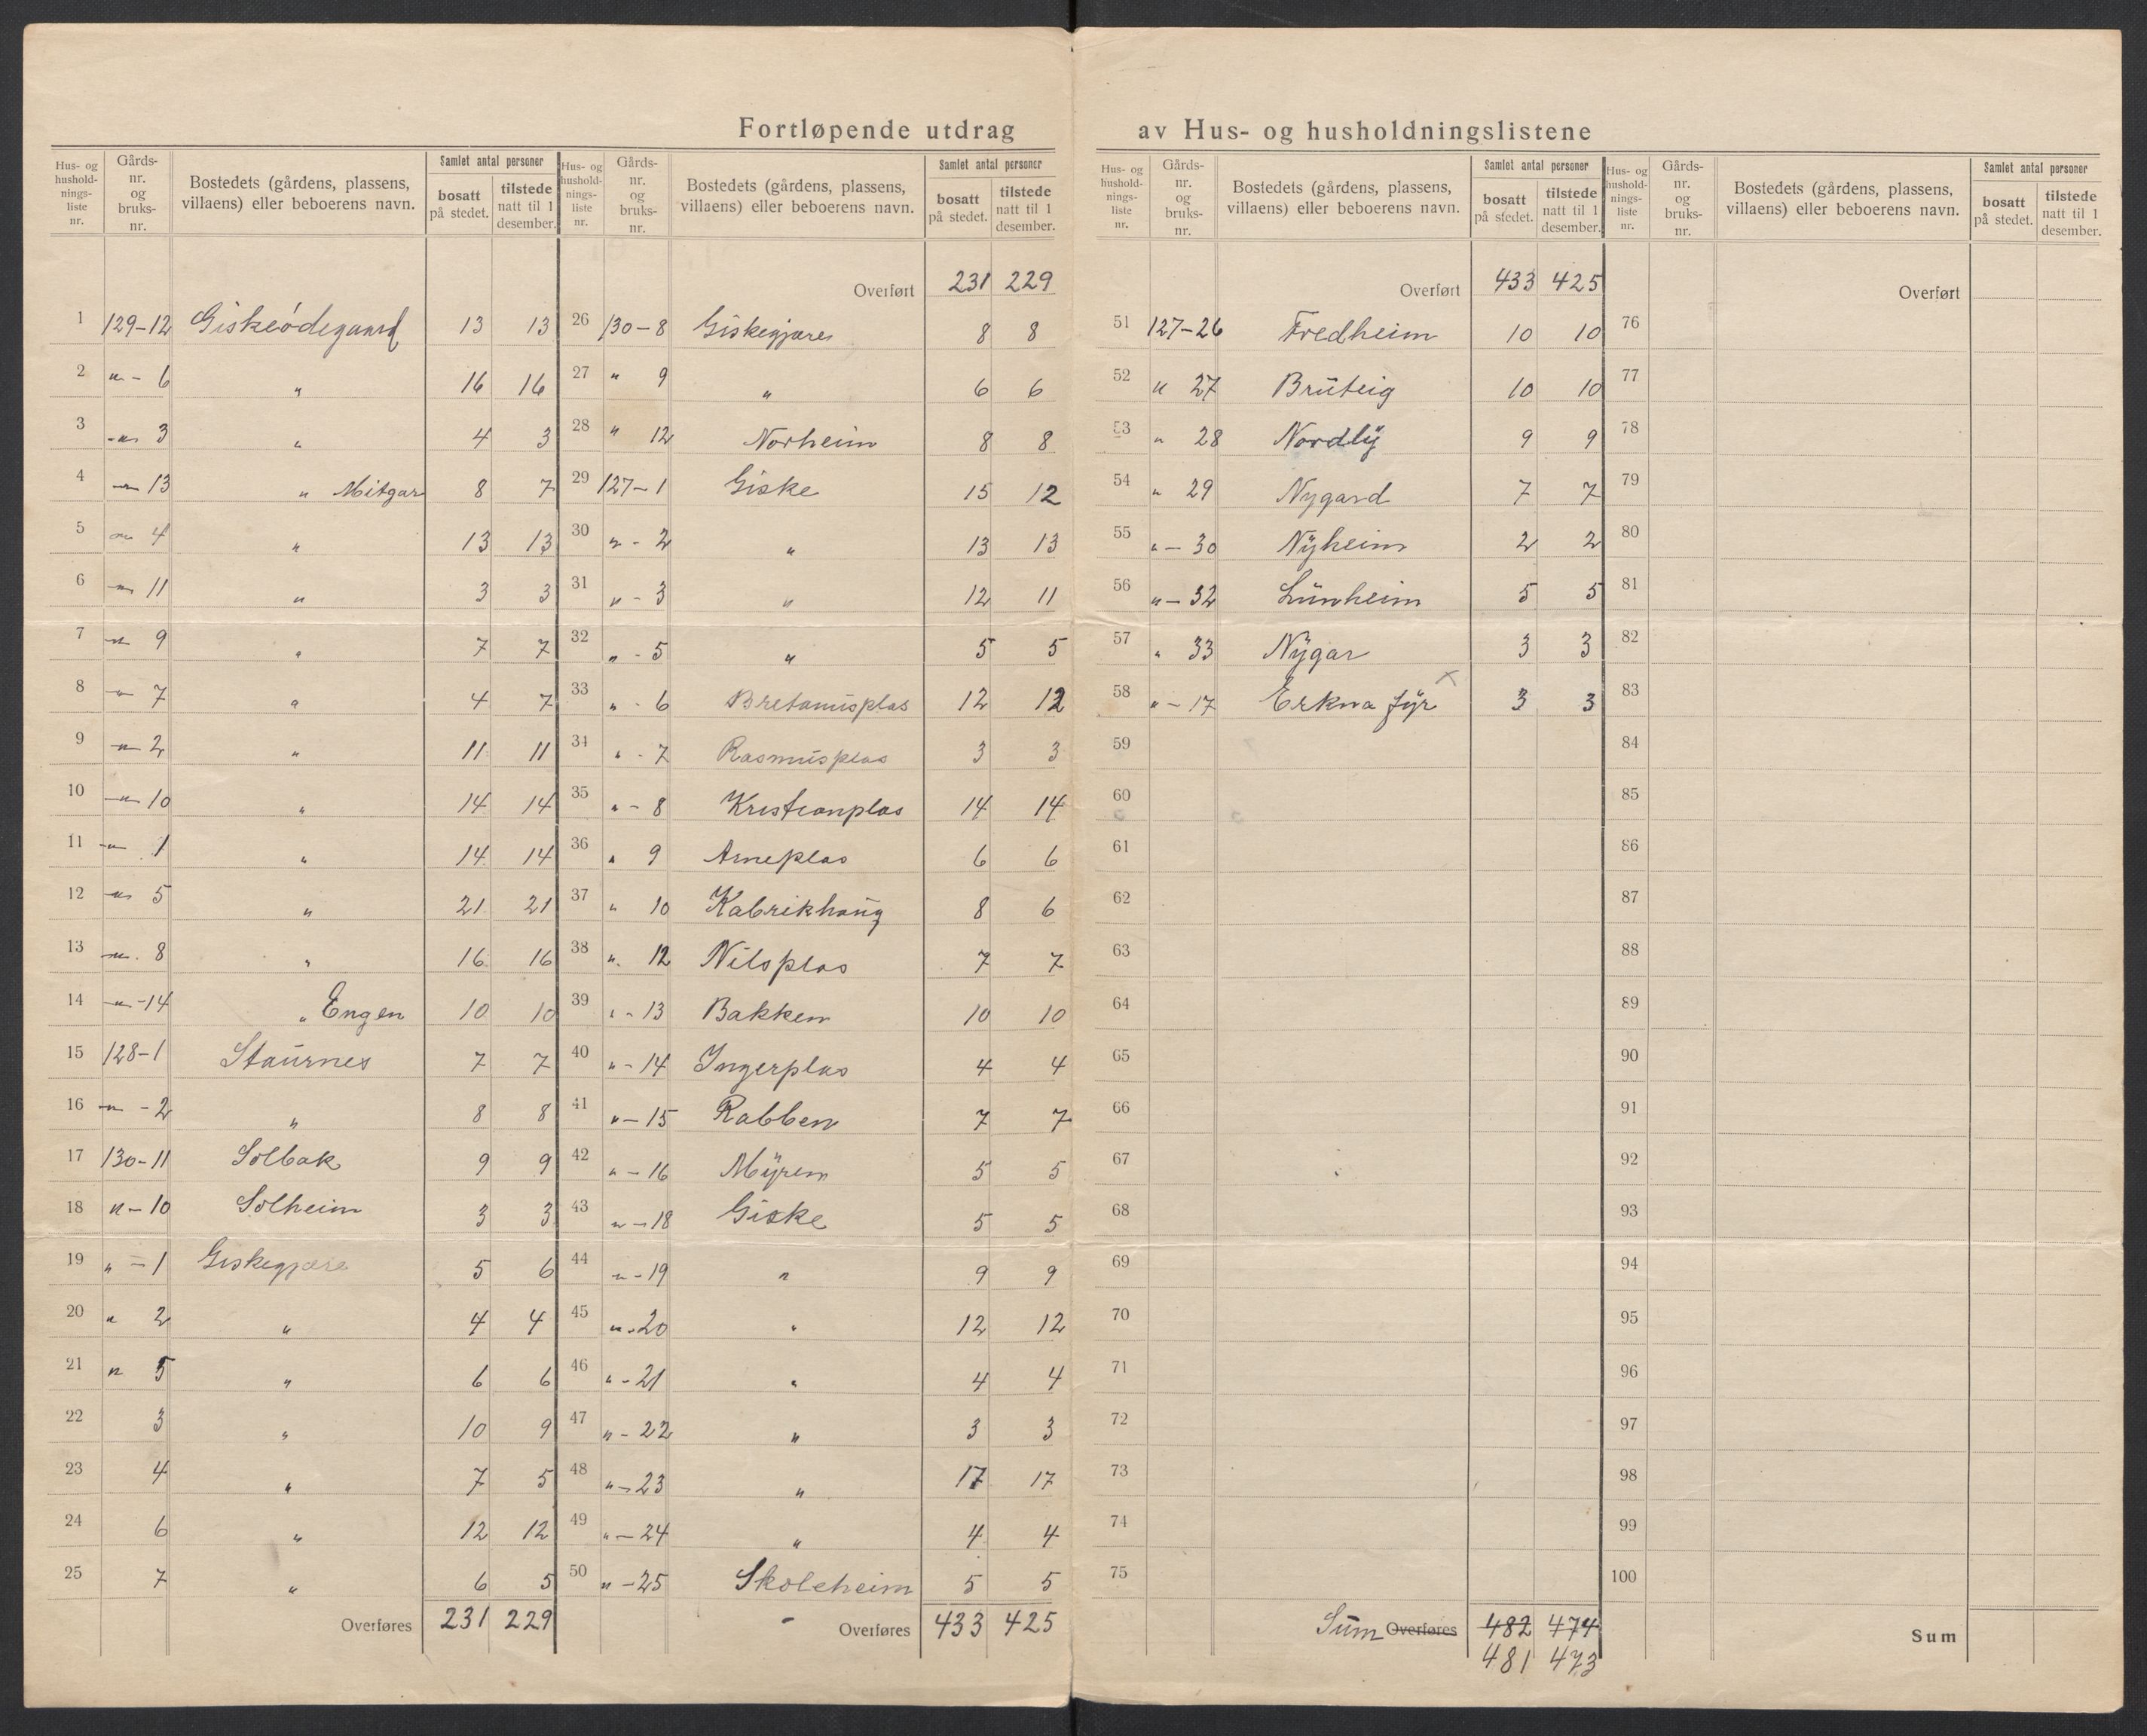 Fortløpende utdrag av Hus- og husholdningslistene
Hus- og hushold-nings-liste nr. | Gårds-nr. og bruks-nr. | Bostedets (gårdens, plassens, villaens) eller beboerens navn. | Samlet antal personer | bosatt på stedet. | tilstede natt til 1 desember.
1 129-12 Giskeødegaard 13 13
2 " - 6 " 16 16
3 -"- 3 " 4 3
4 -"- 13 " Mitgar 8 7
5 -"- 4 " 13 13
6 -"- 11 " 3 3
7 -"- 9 " 7 7
8 -"- 7 " 4 7
9 -"- 2 " 11 11
10 -"- 10 " 14 14
11 -"- 1 " 14 14
12 -"- 5 " 21 21
13 -"- 8 " 16 16
14 -"- 14 " Engen 10 10
15 128-1 Staurnes 7 7
16 -"- 2 " 8 8
17 130-11 Solbak 9 9
18 " - 10 Solheim 3 3
19 " - 1 Giskegjære 5 6
20 " 2 " 4 4
21 " 5 " 6 6
22 3 " 10 9
23 4 " 7 5
24 6 " 12 12
25 7 " 6 5
Overføres 231 229
Hus- og hushold-nings-liste nr. | Gårds-nr. og bruks-nr. | Bostedets (gårdens, plassens, villaens) eller beboerens navn. | Samlet antal personer | bosatt på stedet. | tilstede natt til 1 desember.
Overført 231 229
26 130-8 Giskegjære 8 8
27 " 9 " 6 6
28 " 12 Norheim 8 8
29 127-1 Giske 15 12
30 " - 2 " 13 13
31 " - 3 " 12 11
32 " - 5 " 5 5
33 " - 6 Bretanusplas 12 12
34 " - 7 Rasmusplas 3 3
35 " - 8 Kristianplas 14 14
36 " 9 Arneplas 6 6
37 " 10 Kabrikhaug 8 6
38 " 12 Nilsplas 7 7
39 " - 13 Bakken 10 10
40 " - 14 Ingerplas 4 4
41 " - 15 Rabben 7 7
42 " - 16 Myren 5 5
43 " - 18 Giske 5 5
44 " - 19 " 9 9
45 " - 20 " 12 12
46 " - 21 " 4 4
47 " - 22 " 3 3
48 " - 23 " 17 17
49 " - 24 " 4 4
50 " - 25 Skoleheim 5 5
Overføres 433 425
Hus- og hushold-nings-liste nr. | Gårds-nr. og bruks-nr. | Bostedets (gårdens, plassens, villaens) eller beboerens navn. | Samlet antal personer | bosatt på stedet. | tilstede natt til 1 desember.
Overført 433 425
51 127-26 Fredheim 10 10
52 " 27 Bruteig 10 10
53 " 28 Nordly 9 9
54 " 29 Nygard 7 7
55 " - 30 Nyheim 2 2
56 " - 32 Lunheim 5 5
57 " 33 Nygar 3 3
58 " - 17 Erkna fyr × 3 3
59
60
61
62
63
64
65
66
67
68
69
70
71
72
73
74
75
Sum Overføres 482 474
481 473
Hus- og hushold-nings-liste nr. | Gårds-nr. og bruks-nr. | Bostedets (gårdens, plassens, villaens) eller beboerens navn. | Samlet antal personer | bosatt på stedet. | tilstede natt til 1 desember.
Overført
76
77
78
79
80
81
82
83
84
85
86
87
88
89
90
91
92
93
94
95
96
97
98
99
100
Sum